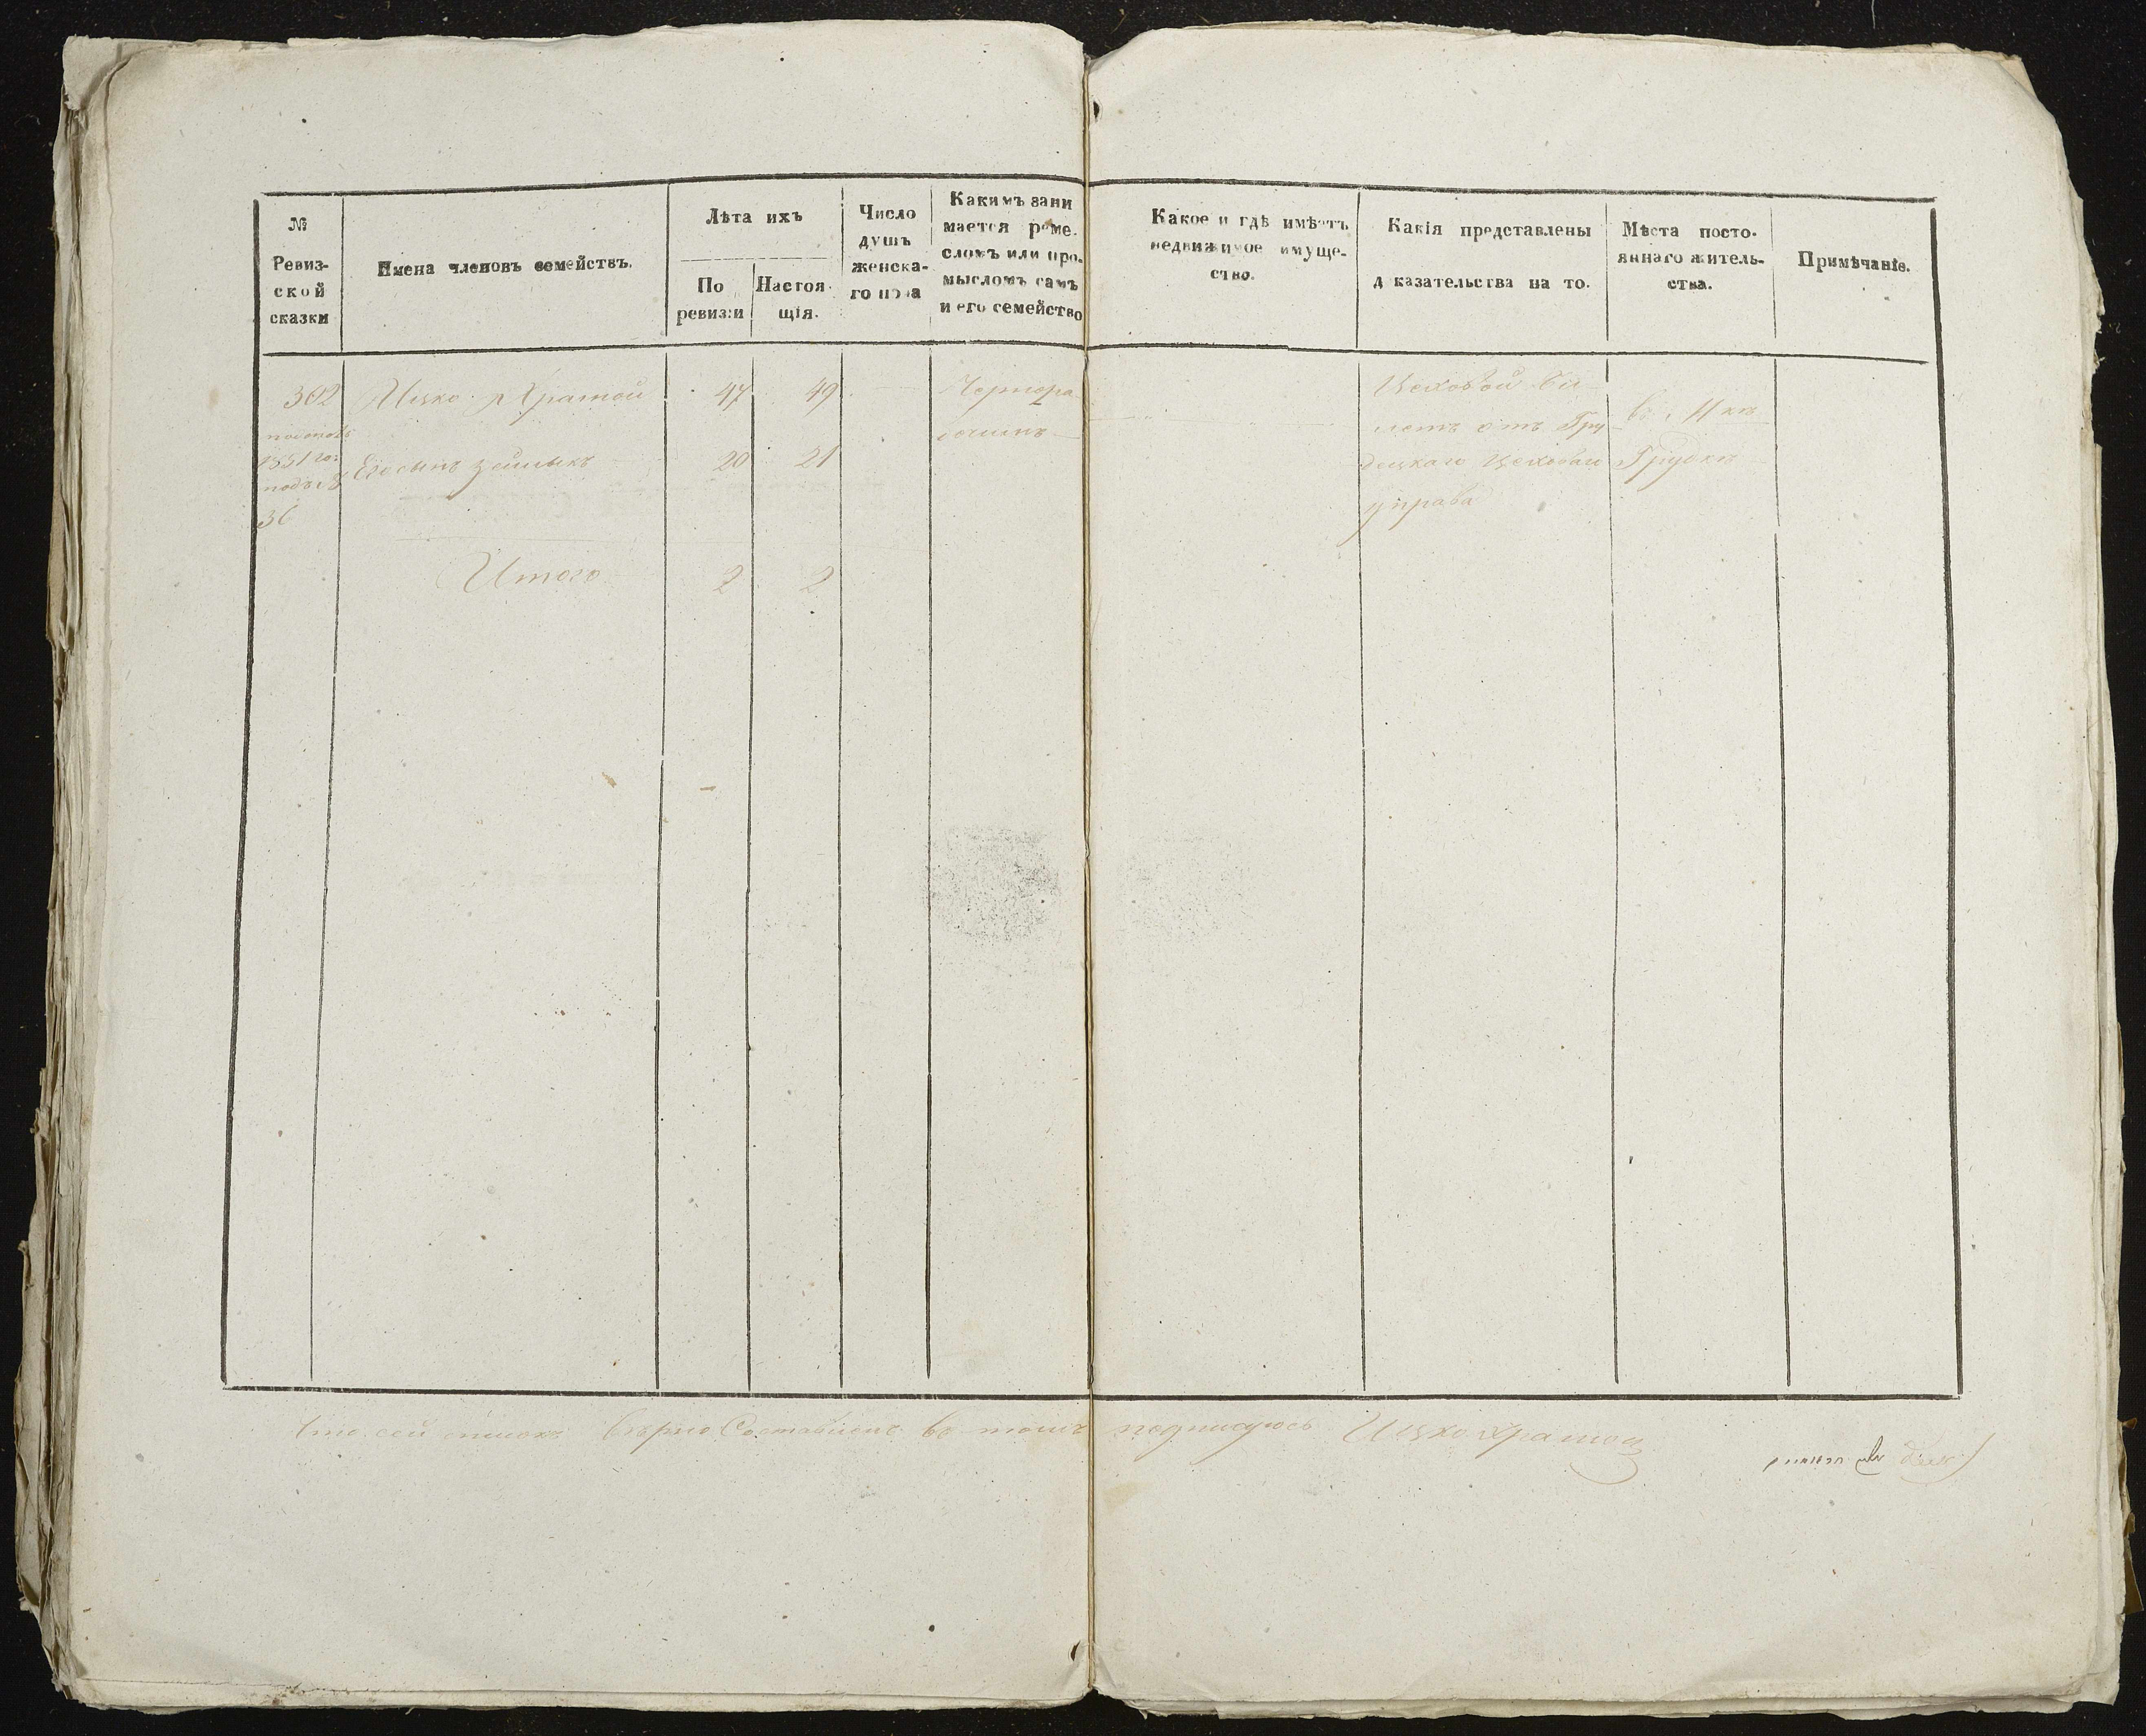 №
Ревиз-
ской
сказки
Имена членовъ семействъ.
Лѣта ихъ
По
ревизіи
Настоя-
щія.
Число
душъ
женска-
го пола
Какимъ зани
мается реме-
сломъ или про-
мысломъ самъ
и его семейство
Какое и гдѣ имѣетъ
недвижимое имуще-
ство.
Какія представлены
д казательства на то.
Мѣста посто-
яннаго житель-
ства.
Примѣчаніе.
302 Ицко Храмой 47 49 Чернора
1851
Его сынъ 20 21
36
Итого 2 2
Цеховой би
летъ отъ Гру
децкаго Цеховой
управа
въ м
Грудкѣ
Что сей списокъ вѣрно Составленъ въ томъ подписуюсь Ицко Храмой